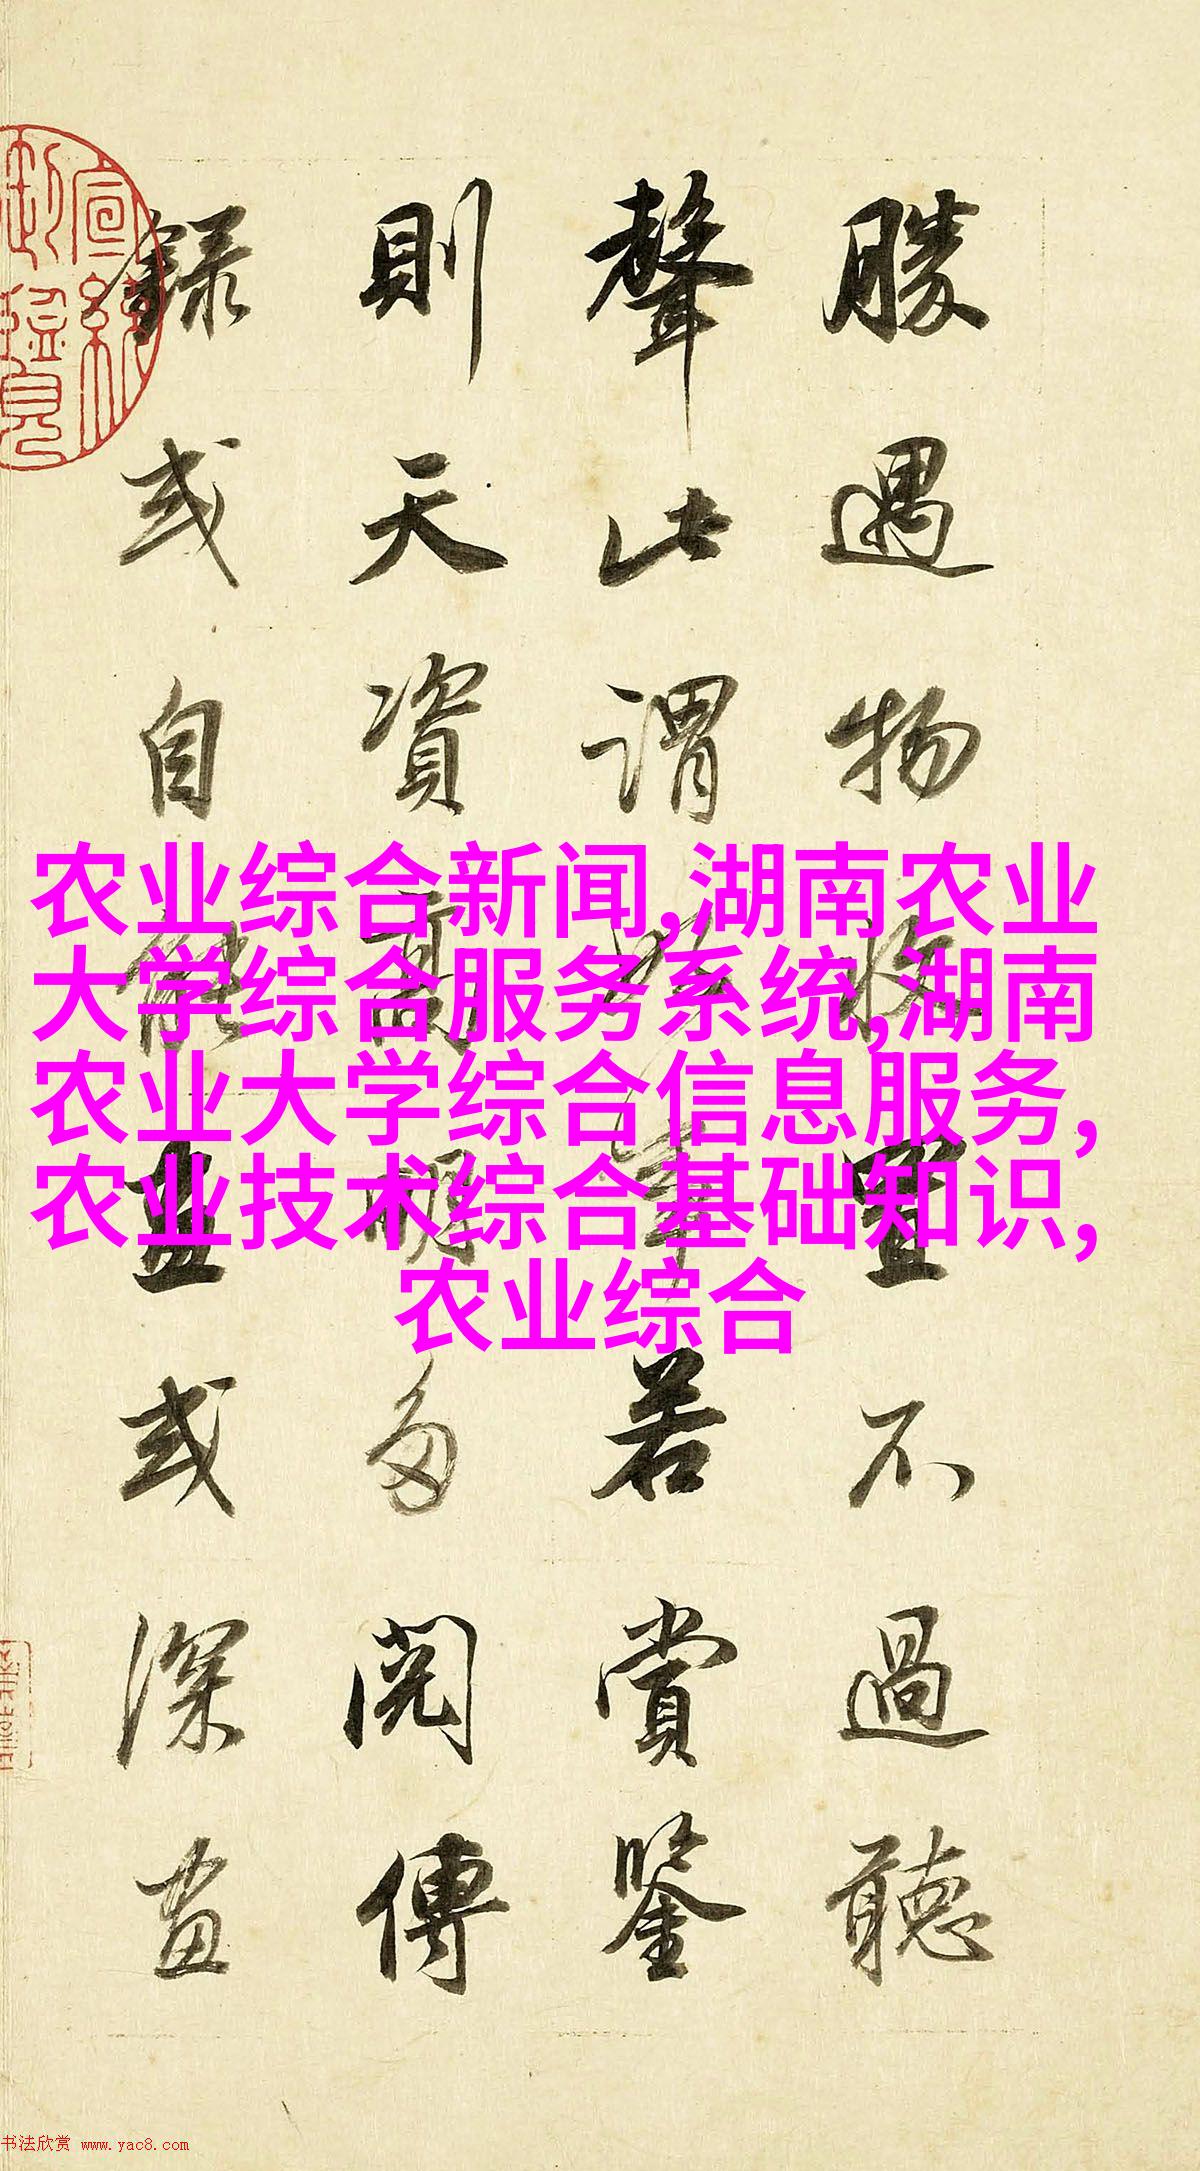 勝遇物收置不過聽
聲此謂好事若賞鑒
則天資高明多閱傳
錄或自能畫或深畫
宣統
农业综合新闻,湖南农业
大学综合服务系统,湖南
农业大学综合信息服务,
农业技术综合基础知识,
农业综合
书法欣赏 www.yac8.com